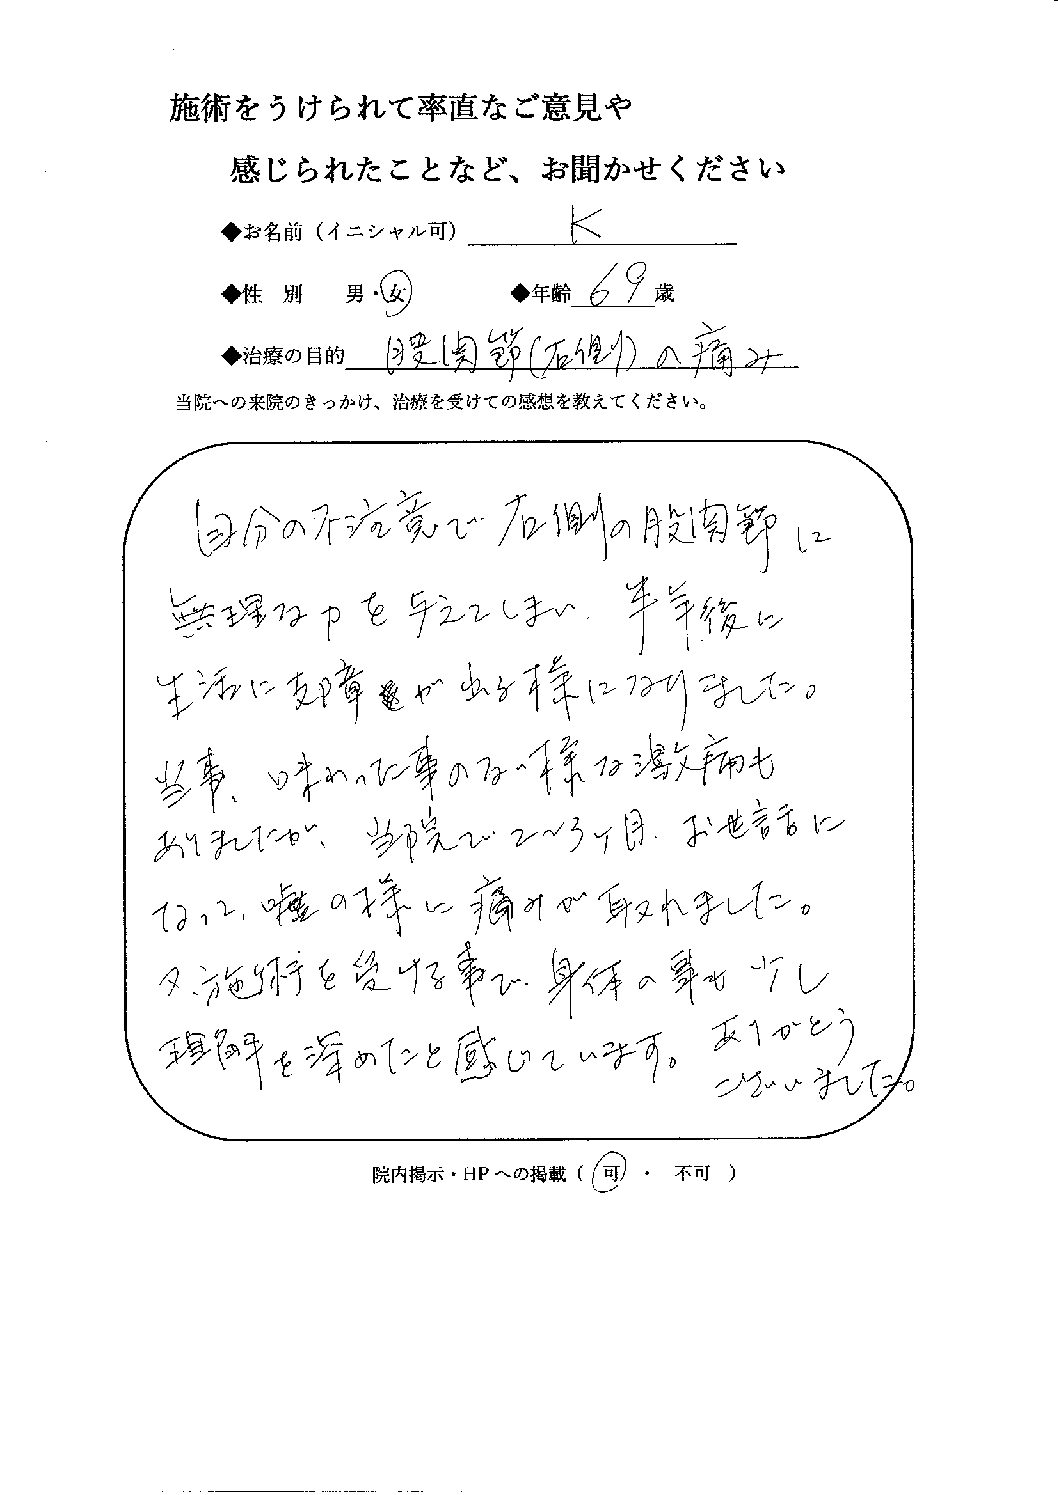 施術をうけられて率直なご意見や
感じられたことなど、お聞かせください
◆お名前（イニシャル可） K
◆性 別 男・女 ◆年齢 69 歳
◆治療の目的 股関節(右側)の痛み
当院への来院のきっかけ、治療を受けての感想を教えてください。
自分の不注意で右側の股関節に
無理な力を与えてしまい、半年後に
生活に支障が出る様になりました。
当事、味わった事のない様な激痛も
ありましたが、当院で2~3ヶ月、お世話に
なって、嘘の様に痛みが取れました。
又、施術を受ける事で、身体の事も少し
理解を深めたと感じています。ありがとう
ございました。
院内掲示・HPへの掲載（ 可 ・ 不可 ）